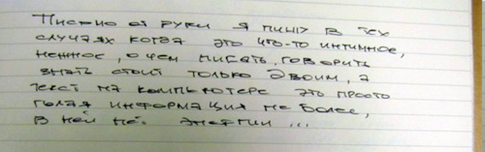 Письмо от руки я пишу в тех
случаях когда это что-то интимное,
нежное, о чем писать, говорить
знать стоит только двоим, а
текст на компьютере это просто
голая информация не более,
в ней нет энергии ...